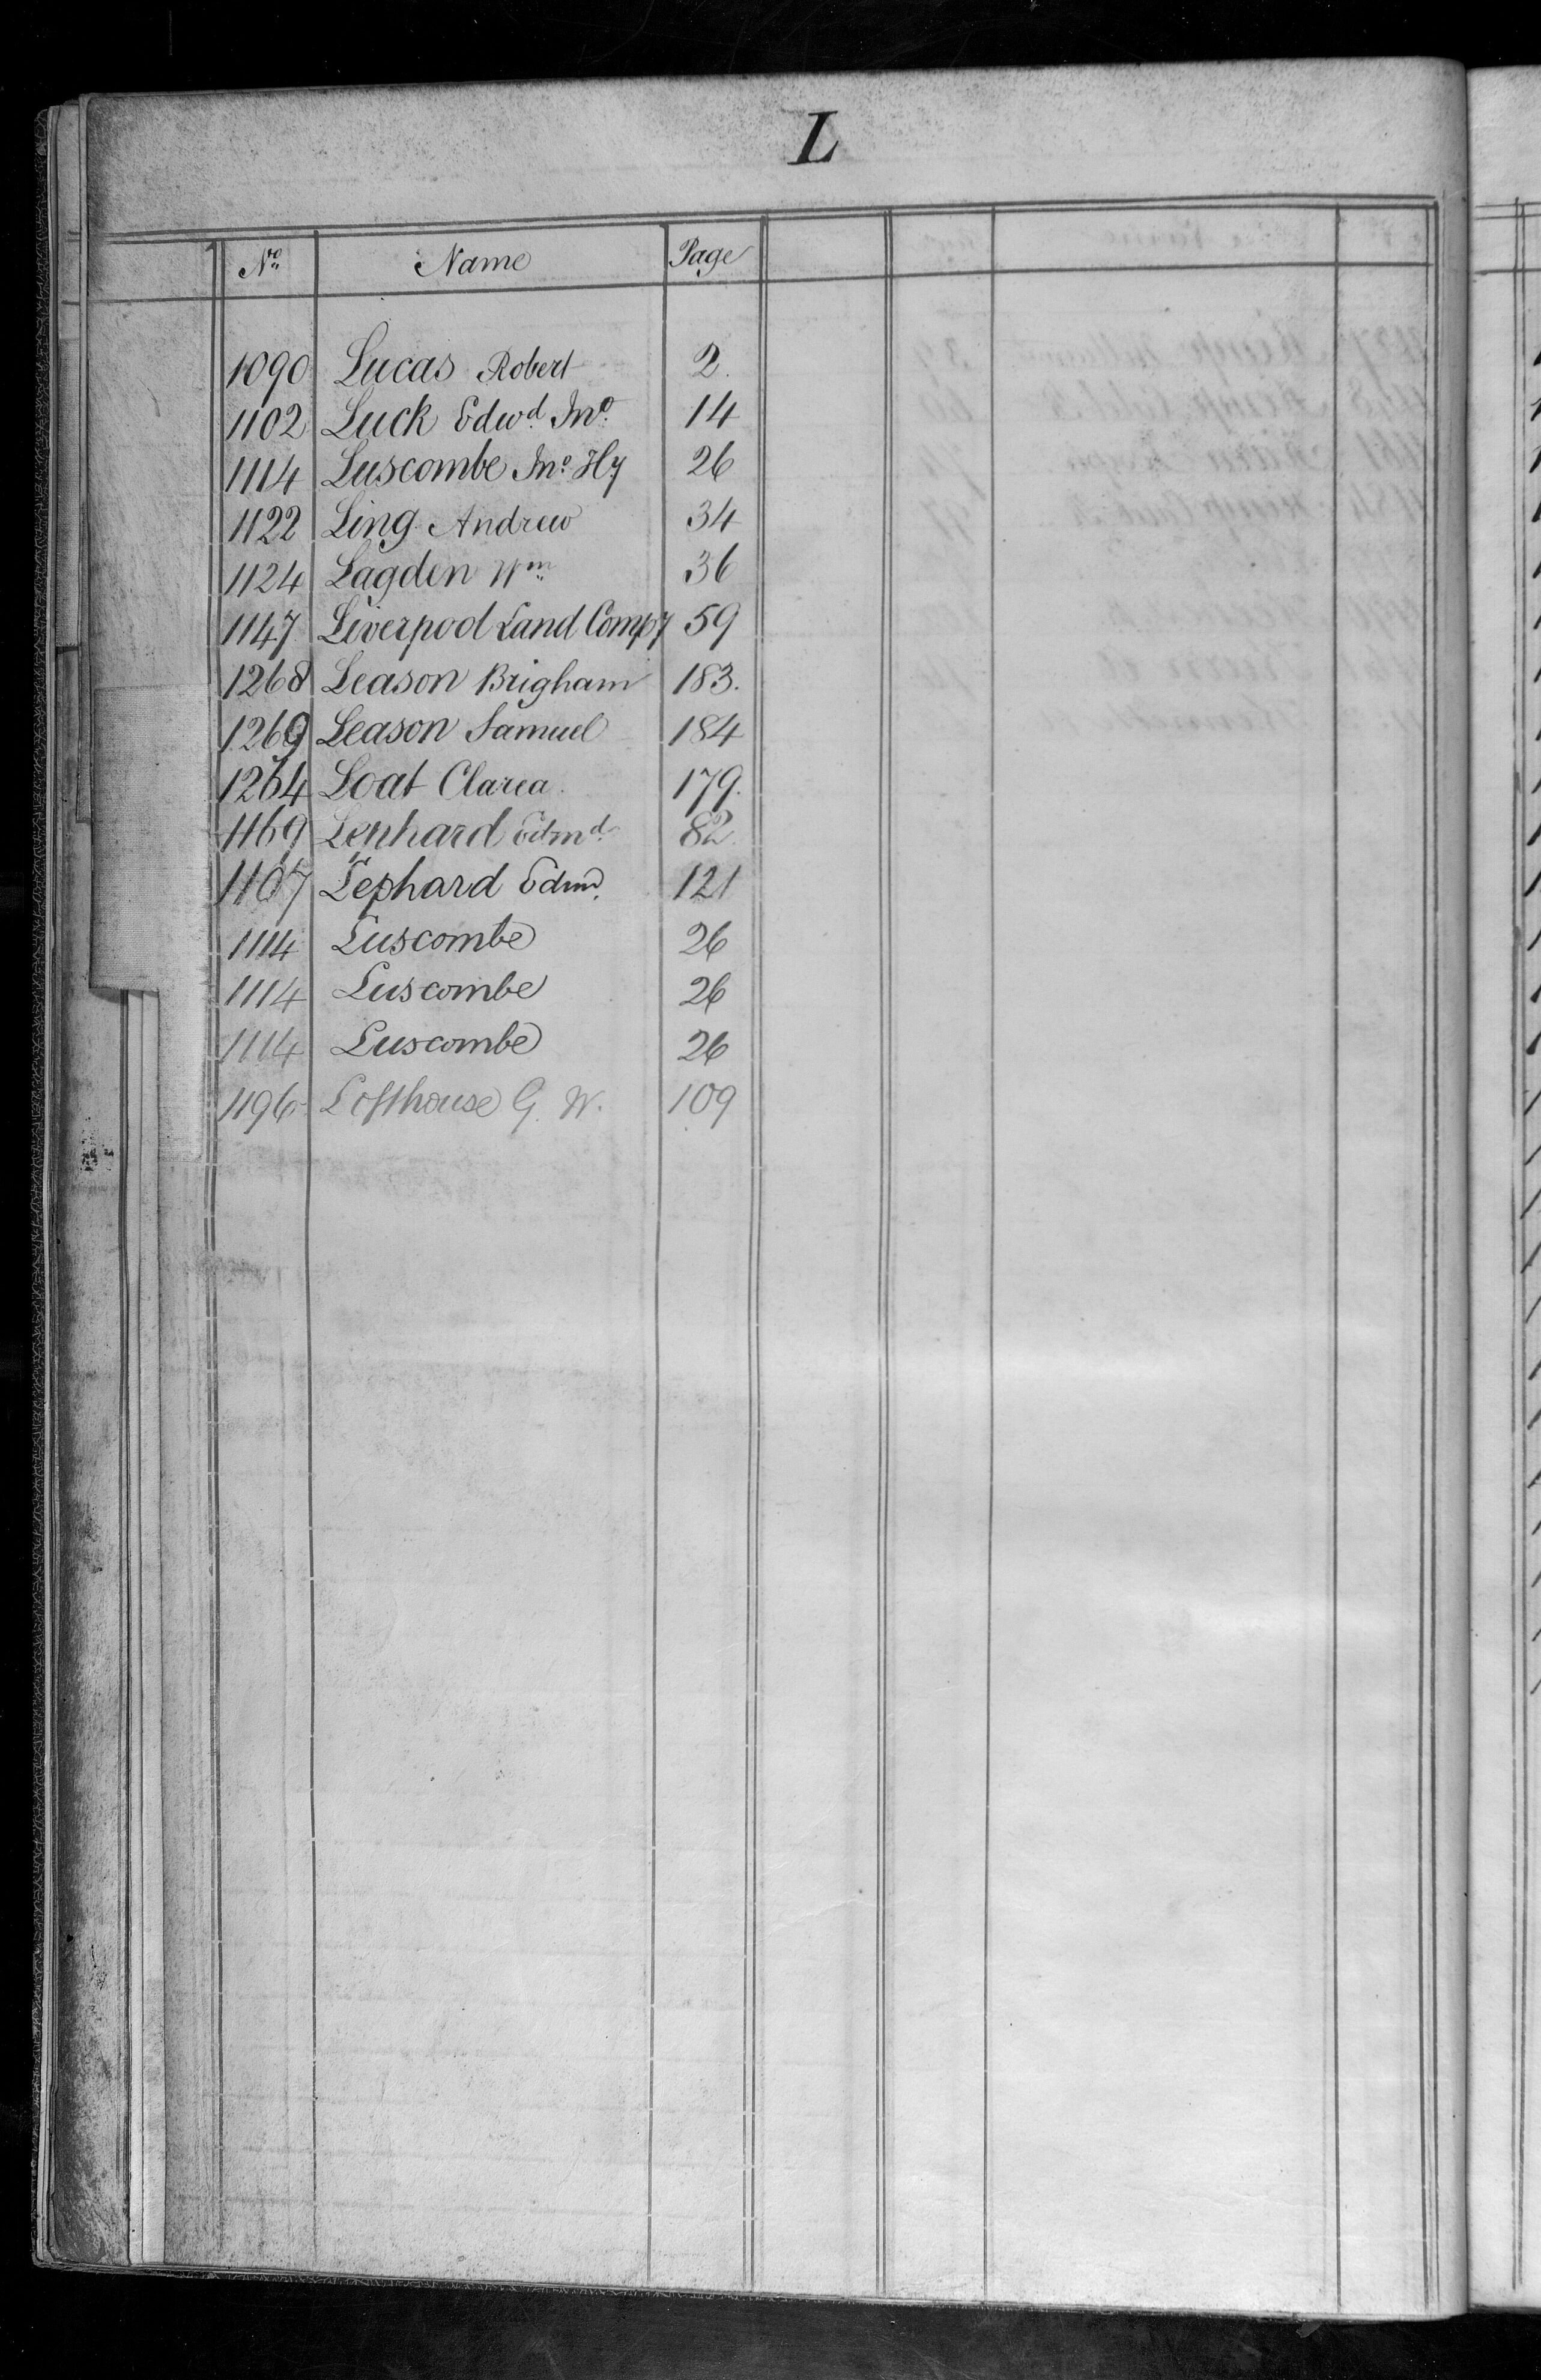 L
No Name Page
1090 Lucas Robert 2.
1102 Luck Edwd. Jno. 14
1114 Luscombe Jno. Hy 26
1122 Ling Andrew 34
1124 Lagden Wm 36
1147 Liverpool Land Compy 59
1268 Leason Brigham 183.
1269 Leason Samuel 184
1264 Loat Clarea. 179.
1169 Lephard Edmd. 82.
1167 Lephard Edmd. 121
1114 Luscombe 26
1114 Luscombe 26
1114 Luscombe 26
1196 Lofthouse G. W. 109